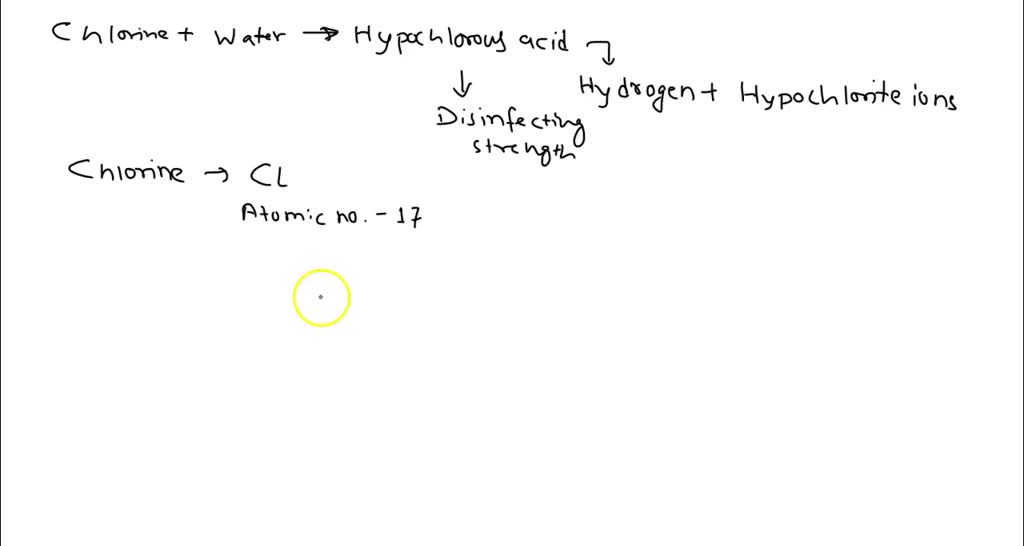 Chlorine + Water → Hypochlorous acid ↴
↓ Hydrogen + Hypochlorite ions
Disinfecting
strength
Chlorine → CL
Atomic no. - 17